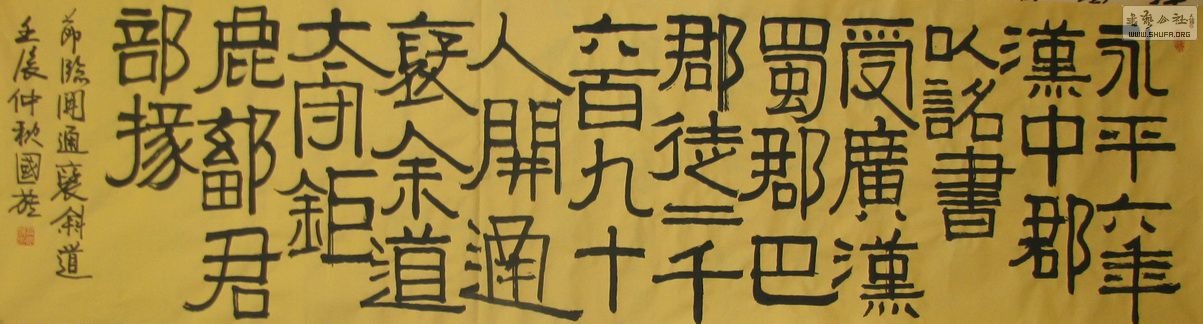 永平六年
漢中郡
以詔書
受廣漢
蜀郡巴
郡徒二千
六百九十
人開通
褒余道
太守鉅
鹿鄐君
部掾
節臨開通褒斜道
壬辰仲秋國
書藝公社
WWW.SHUFA.ORG